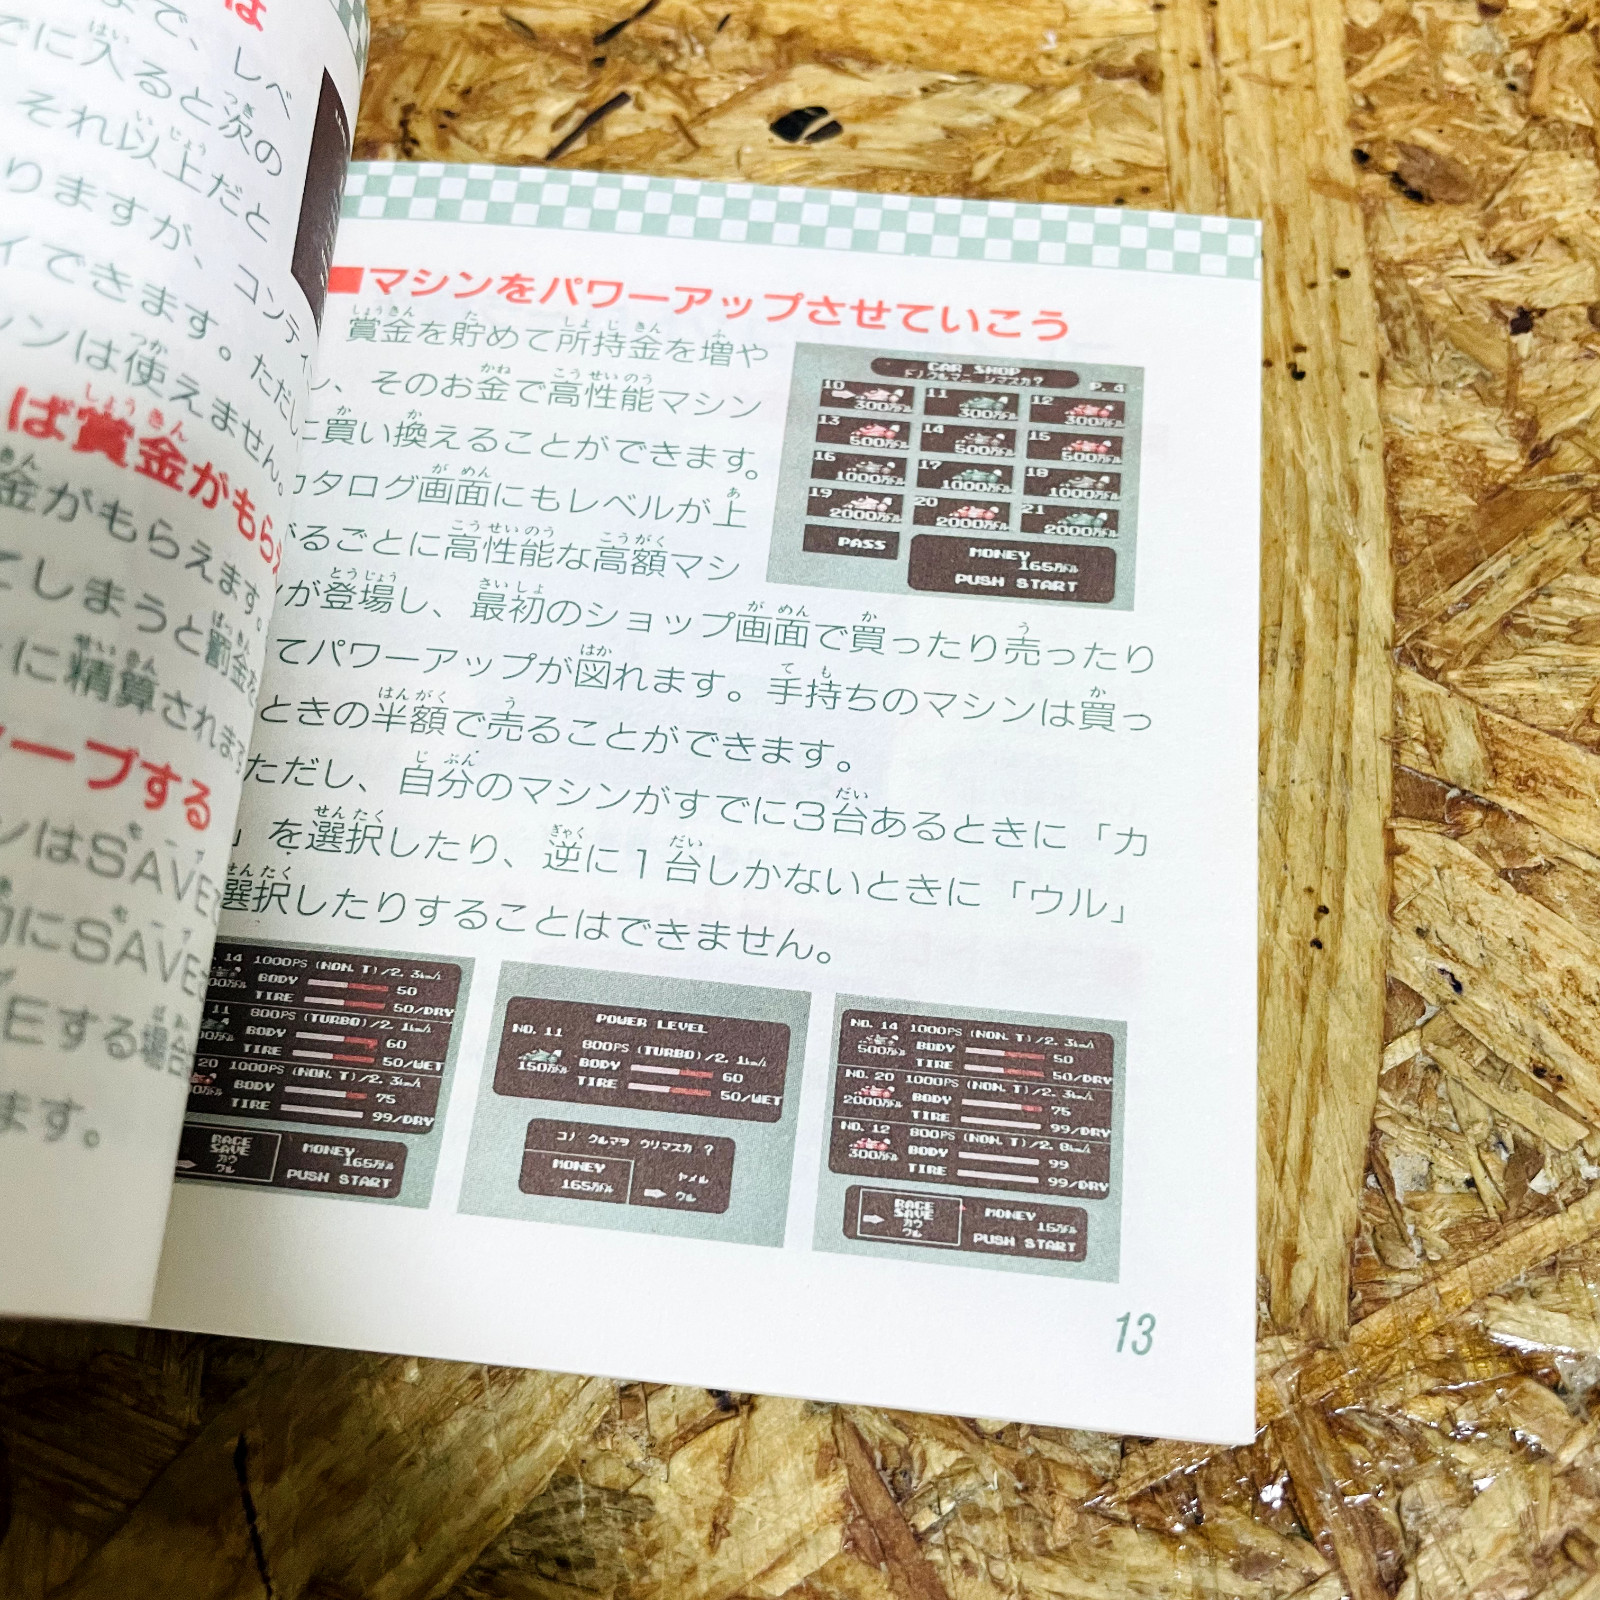 は
で、レベ
でに入ると次の
それ以上だと
りますが、コンテ
ィできます。ただし
シンは使えません。
ば賞金がもらえ
金がもらえます。
てしまうと罰金
に精算されます
ープする
ンはSAVE
にSAVE
Eする場合
ます。
■マシンをパワーアップさせていこう
賞金を貯めて所持金を増や
し、そのお金で高性能マシン
に買い換えることができます。
カタログ画面にもレベルが上
がるごとに高性能な高額マシ
ンが登場し、最初のショップ画面で買ったり売ったり
てパワーアップが図れます。手持ちのマシンは買っ
ときの半額で売ることができます。
ただし、自分のマシンがすでに3台あるときに「カ
」を選択したり、逆に1台しかないときに「ウル」
選択したりすることはできません。
CAR SHOP
ドノクルマニ シマスカ? P. 4
10 11 12
300万ドル 300万ドル 300万ドル
13 14 15
500万ドル 500万ドル 500万ドル
16 17 18
1000万ドル 1000万ドル 1000万ドル
19 20 21
2000万ドル 2000万ドル 2000万ドル
PASS
MONEY
165万ドル
PUSH START
14 1000PS (NON. T)/2. 3km/l
BODY 50
TIRE 50/DRY
11 800PS (TURBO)/2. 1km/l
BODY 60
TIRE 50/WET
20 1000PS (NON. T)/2. 3km/l
BODY 75
TIRE 99/DRY
RACE
SAVE
カウ
ウル
MONEY
165万ドル
PUSH START
POWER LEVEL
NO. 11
800PS (TURBO)/2. 1km/l
150万ドル BODY 60
TIRE 50/WET
コノ クルマヲ ウリマスカ ?
MONEY
165万ドル
ヤメル
ウル
NO. 14 1000PS (NON. T)/2. 3km/l
500万ドル BODY 50
TIRE 50/DRY
NO. 20 1000PS (NON. T)/2. 3km/l
2000万ドル BODY 75
TIRE 99/DRY
NO. 12 800PS (NON. T)/2. 8km/l
300万ドル BODY 99
TIRE 99/DRY
RACE
SAVE
カウ
ウル
MONEY
15万ドル
PUSH START
13